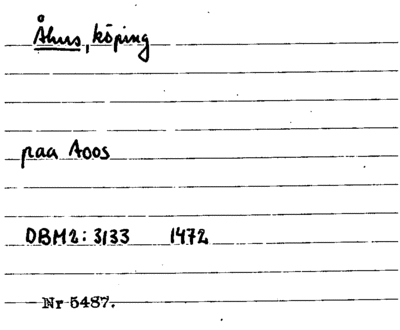 Åhus, köping
paa Aoos
DBM2: 3133 1472
Nr 5487.